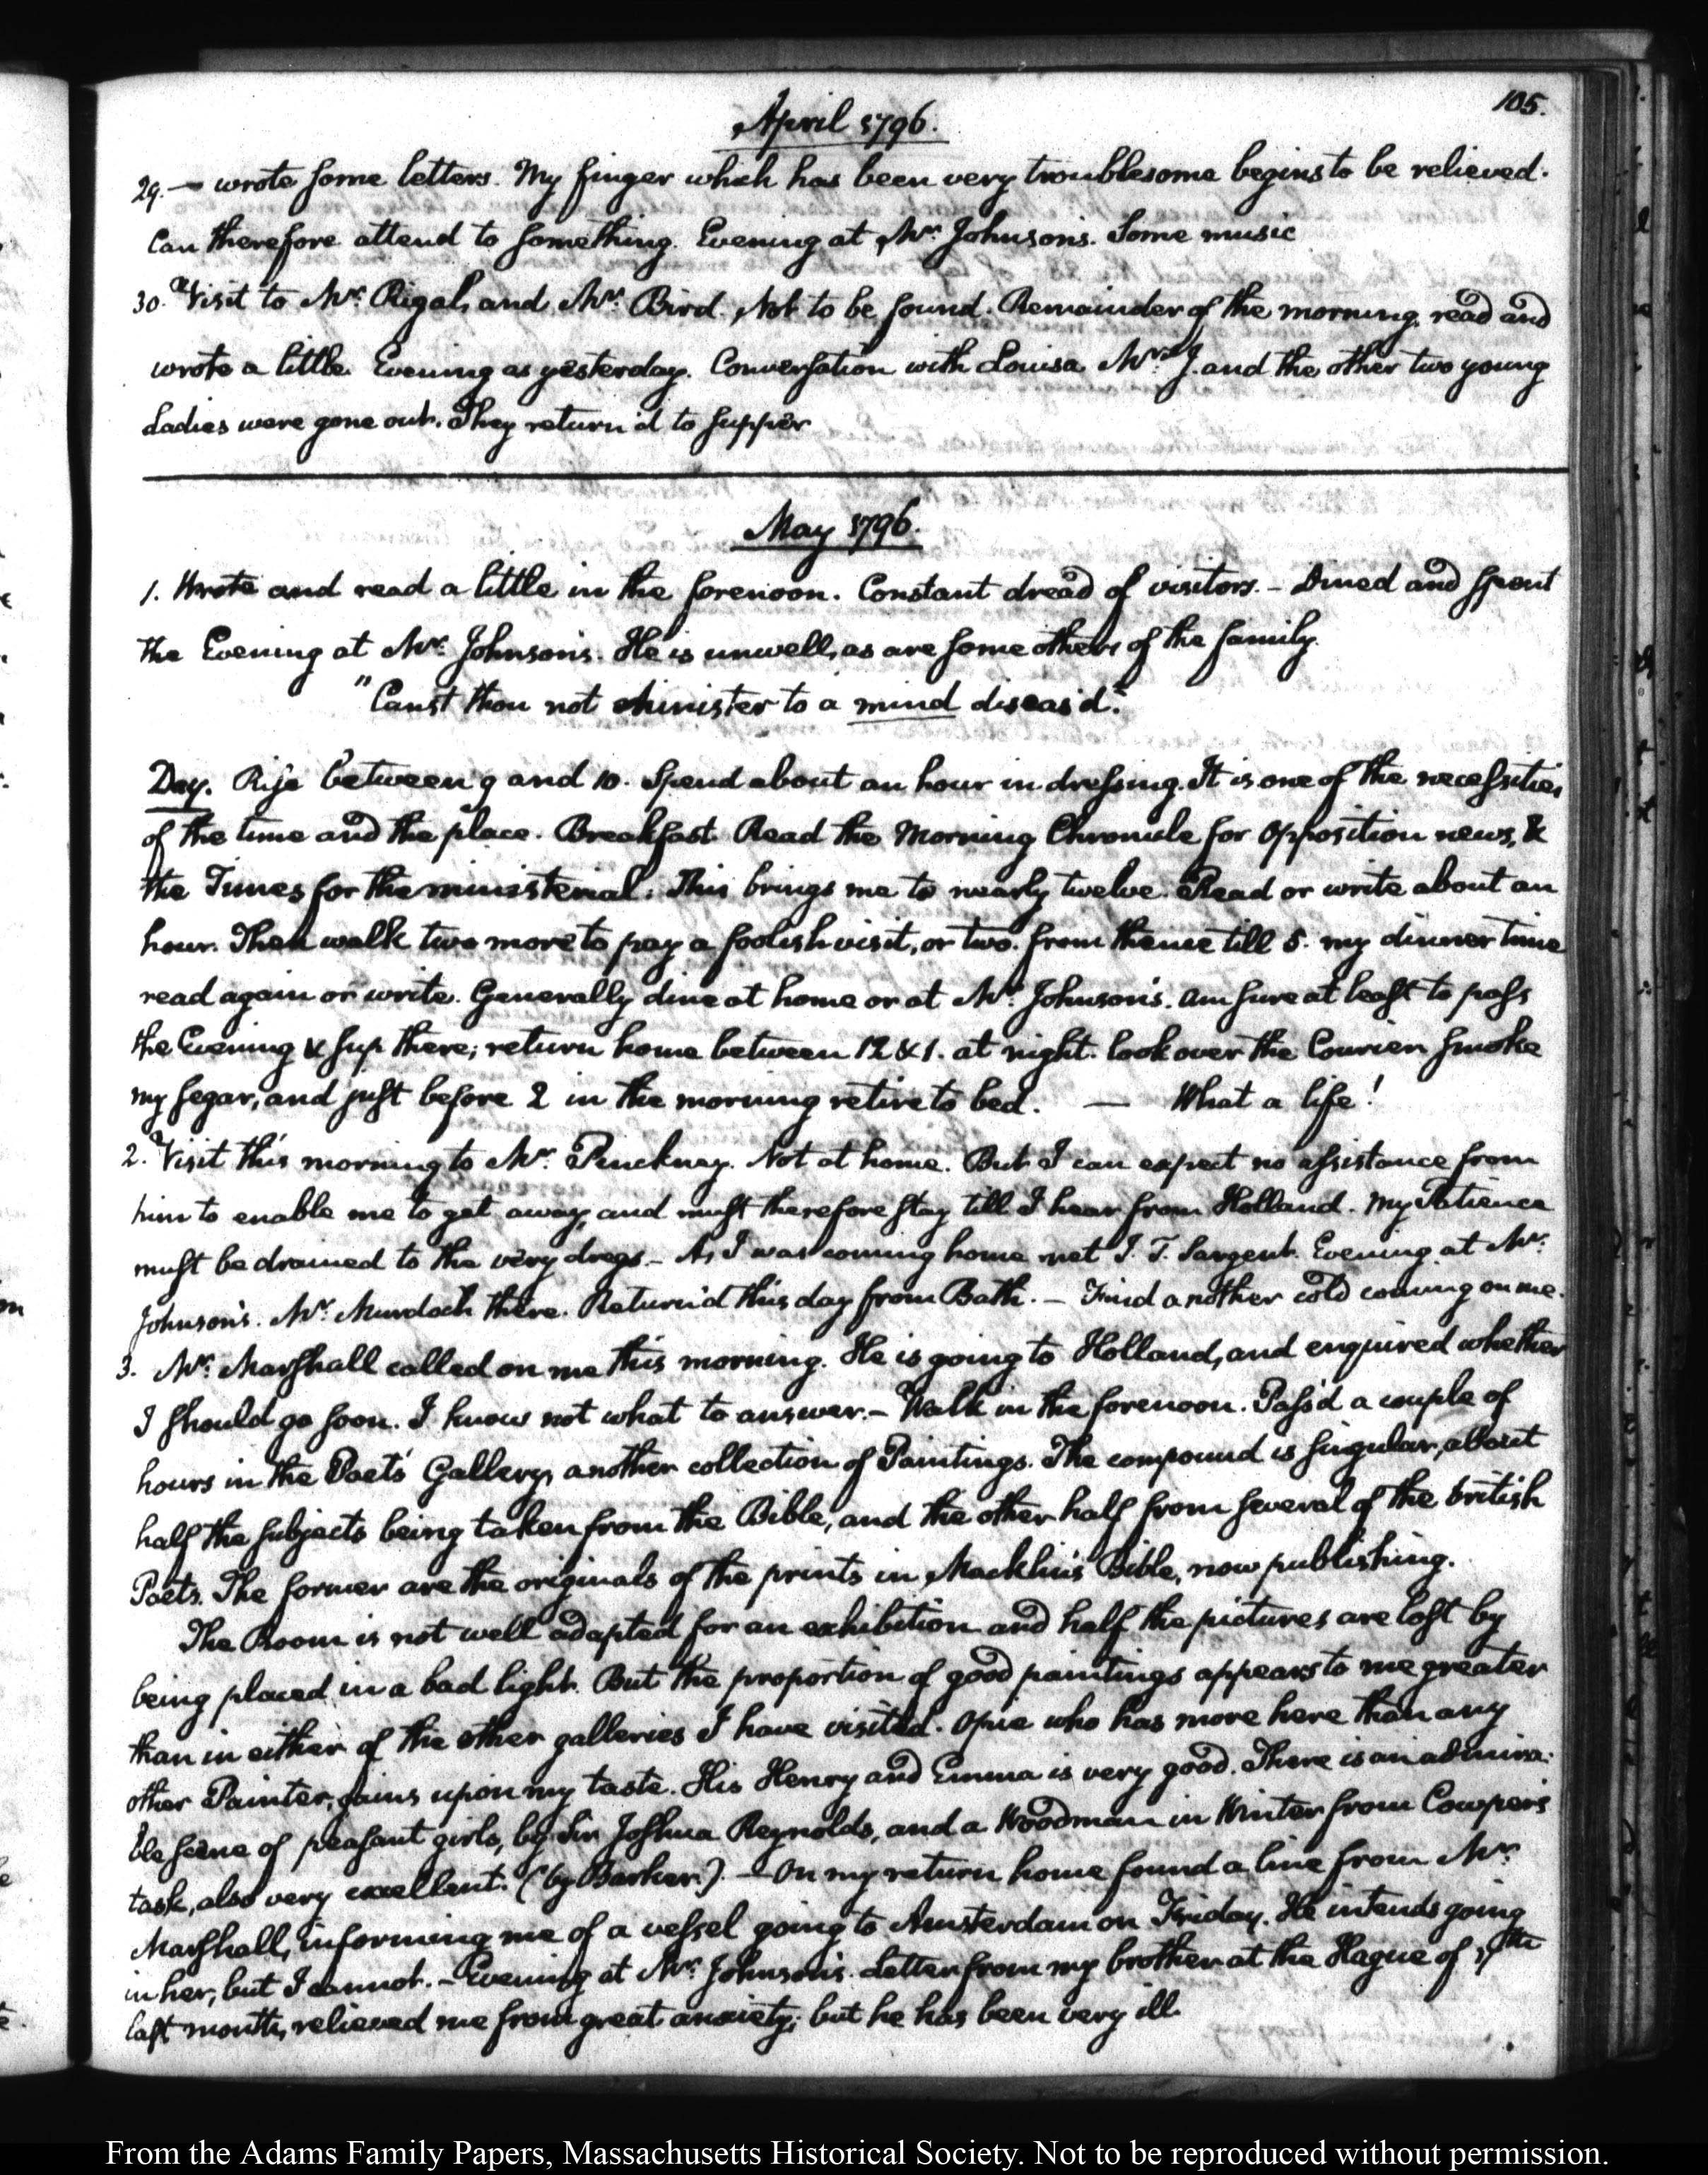 105.
April 1796.
29. — wrote some letters. My finger which has been very troublesome begins to be relieved.
Can therefore attend to something. Evening at Mr. Johnson's. Some music
30. Visit to Mr. Rigal, and Mr. Bird. Not to be found. Remainder of the morning, read and
wrote a little. Evening as yesterday. Conversation with Louisa. Mrs. J. and the other two young
Ladies were gone out. They return'd to supper
May 1796.
1. Wrote and read a little in the forenoon. Constant dread of visitors. — Dined and spent
the Evening at Mr. Johnson's. He is unwell, as are some others of the family.
"Canst thou not Minister to a mind diseas'd."
Day. Rise between 9 and 10. Spend about an hour in dressing. It is one of the necessities
of the time and the place. Breakfast. Read the Morning Chronicle for Opposition news, &
the Times for the ministerial: This brings me to nearly twelve. Read or write about an
hour. Then walk two more to pay a foolish visit, or two. from thence till 5. my dinner time
read again or write. Generally dine at home or at Mr. Johnson's. am sure at least to pass
the Evening & sup there; return home between 12 & 1. at night. look over the Courier smoke
my segar, and just before 2 in the morning retire to bed. — What a life!
2. Visit this morning to Mr. Pinckney. Not at home. But I can expect no assistance from
him to enable me to get away, and must therefore stay till I hear from Holland. My Patience
must be drained to the very dregs — As I was coming home met I. T. Sargent. Evening at Mr.
Johnson's. Mr. Murdoch there. Return'd this day from Bath. — Find another cold coming on me.
3. Mr. Marshall called on me this morning. He is going to Holland, and enquired whether
I should go soon. I know not what to answer. — Walk in the forenoon. Pass'd a couple of
hours in the Poets' Gallery, another collection of Paintings. The compound is singular, about
half the subjects being taken from the Bible, and the other half from several of the british
Poets. The former are the originals of the prints in Macklin's Bible, now publishing.
The Room is not well adapted for an exhibition and half the pictures are lost by
being placed in a bad light. But the proportion of good paintings appears to me greater
than in either of the other galleries I have visited. Opie who has more here than any
other Painter, gains upon my taste. His Henry and Emma is very good. There is an admira-
ble scene of peasant girls, by Sir Joshua Reynolds, and a Woodman in Winter from Cowper's
task, also very excellent. (by Barker.) — On my return home found a line from Mr.
Marshall, informing me of a vessel going to Amsterdam on Friday. He intends going
in her, but I cannot. — Evening at Mr. Johnson's. Letter from my brother at the Hague of
last month, relieved me from great anxiety; but he has been very ill.
From the Adams Family Papers, Massachusetts Historical Society. Not to be reproduced without permission.